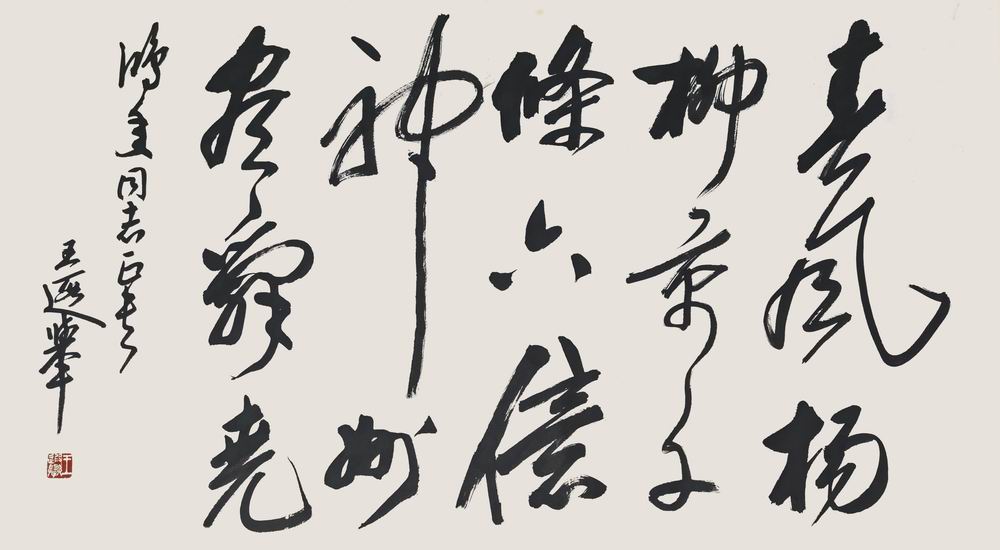 春風楊
柳萬千
條六億
神州
盡舜堯
鴻同志正
王遐舉